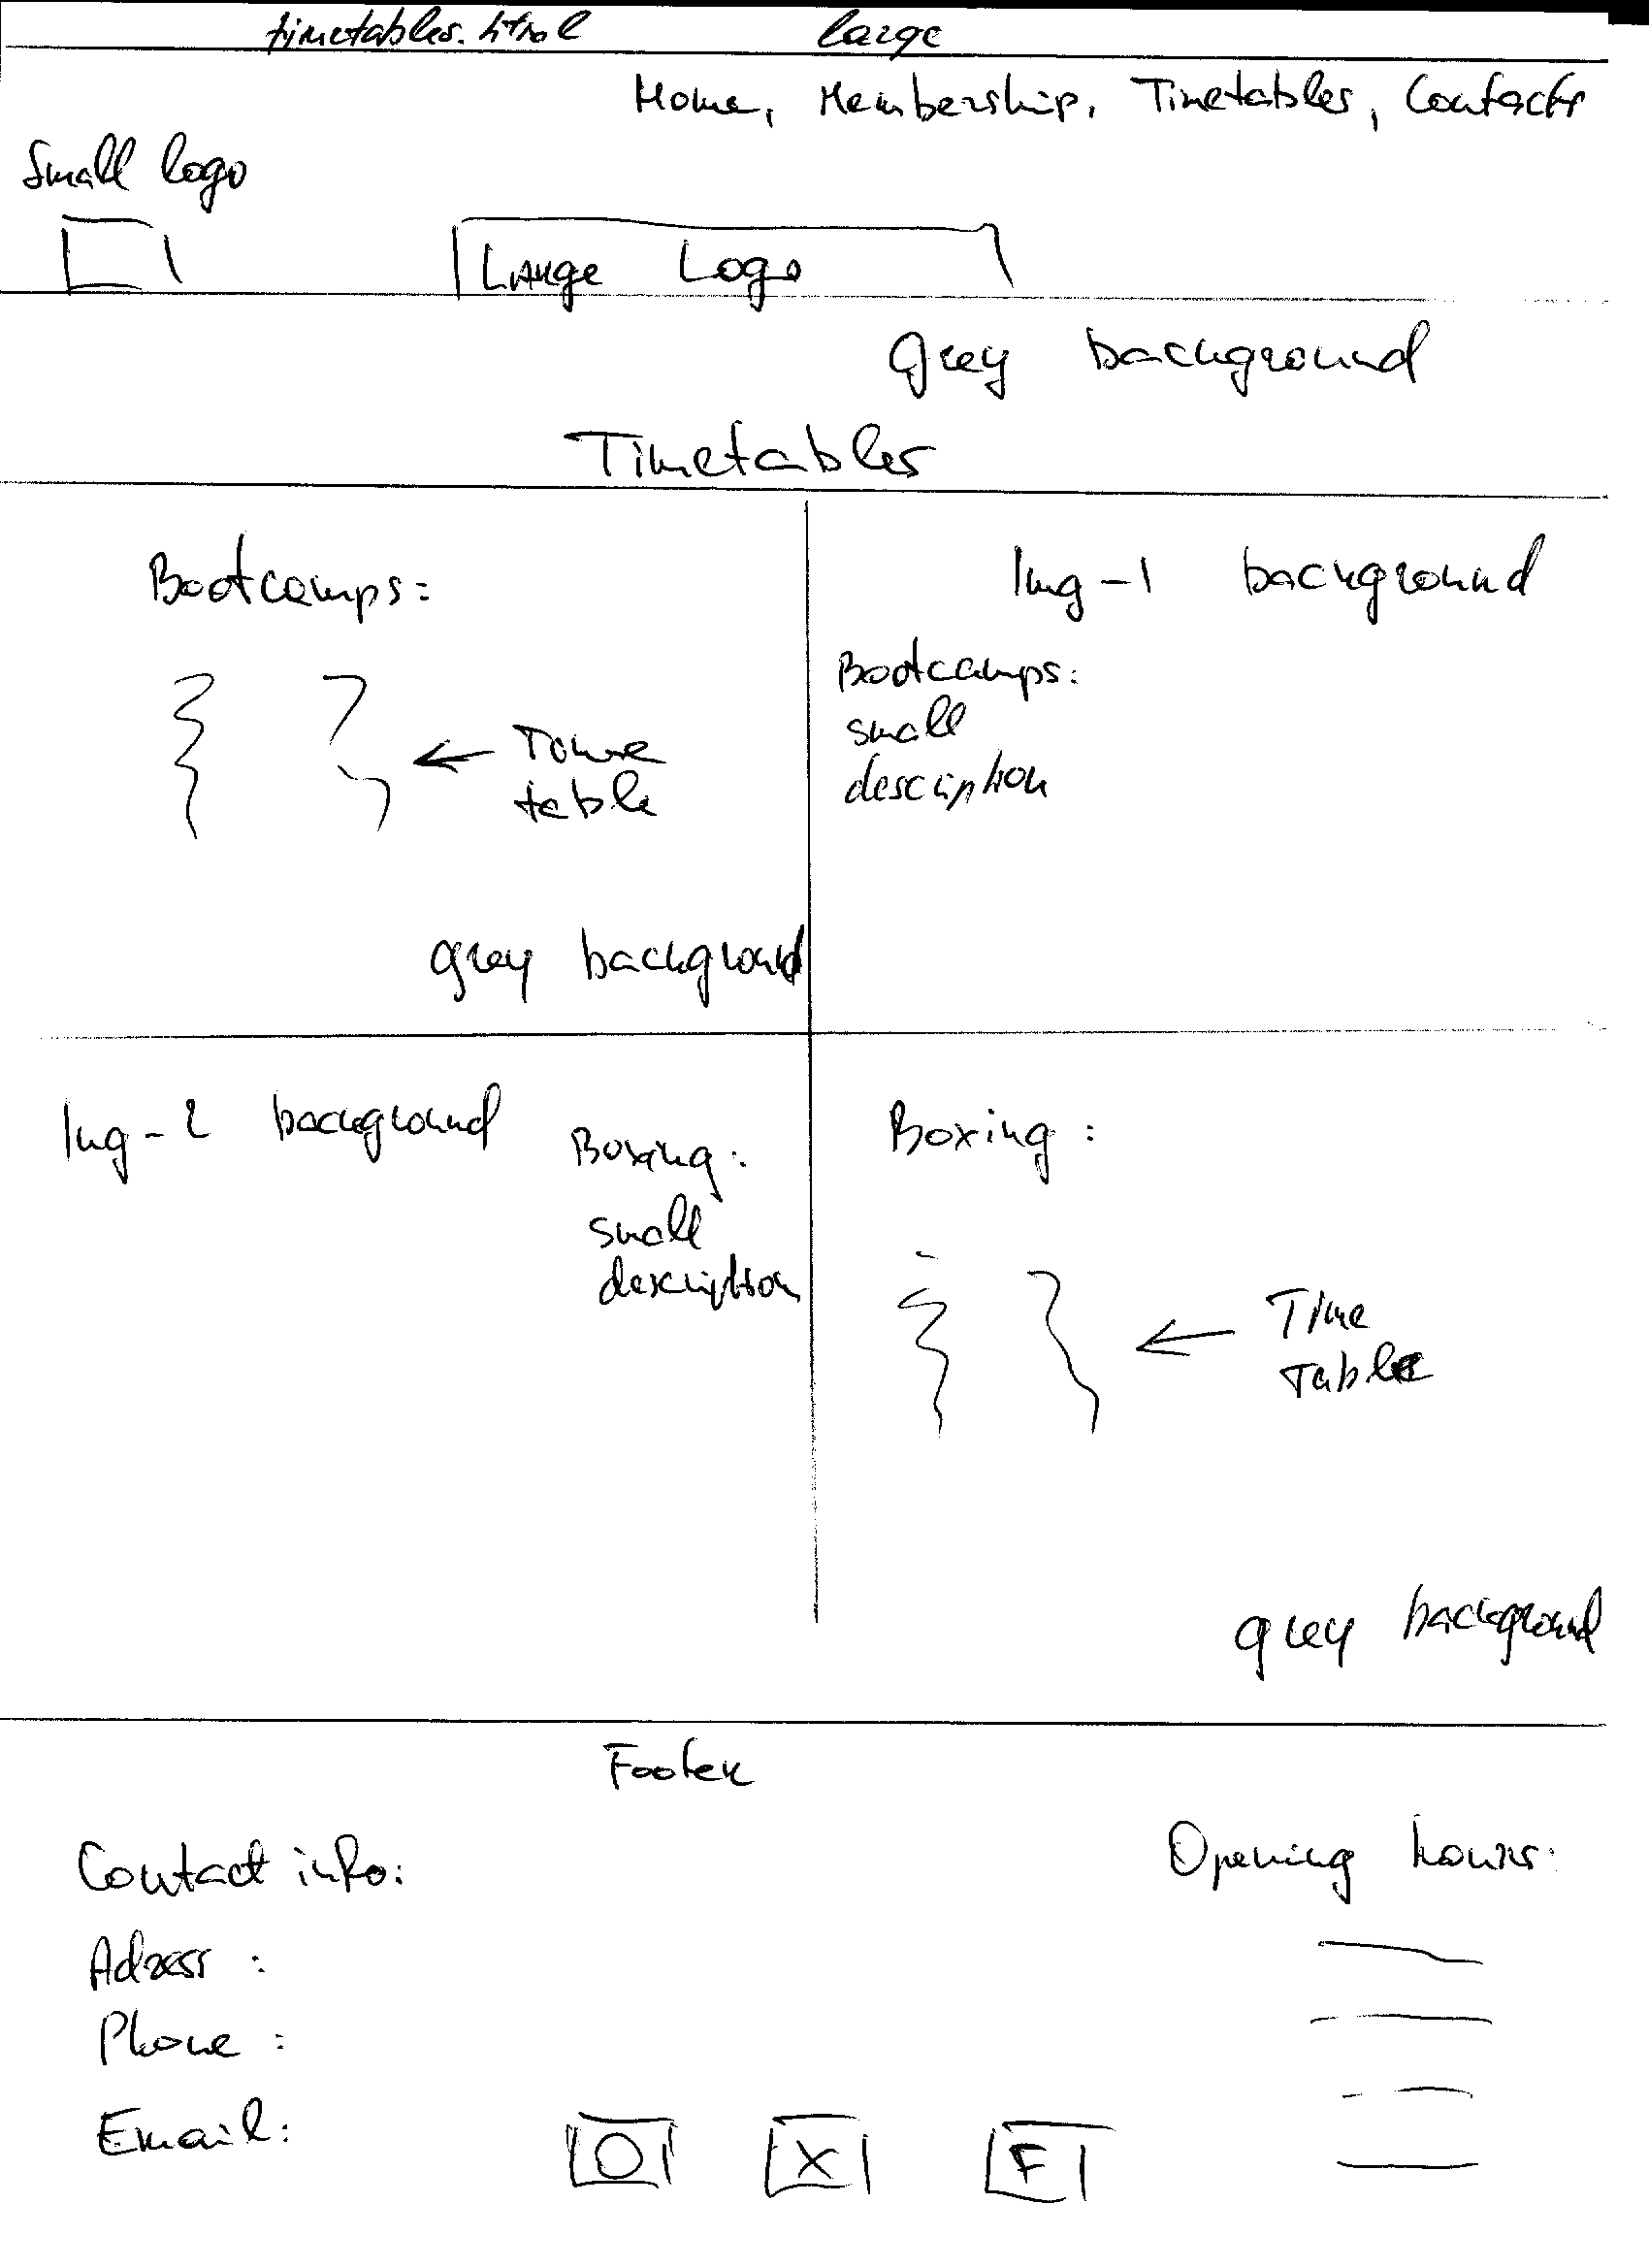 timetables.html large
Home, Membership, Timetables, Contacts
Small logo
Large Logo
grey background
Timetables
Bootcamps:
Img-1 background
Bootcamps:
small
description
← Tome
table
grey background
Img-2 background
Boxing:
small
description
Boxing:
← Time
Table
grey background
Footer
Contact info:
Opening hours:
Adress:
Phone:
Email:
O X F